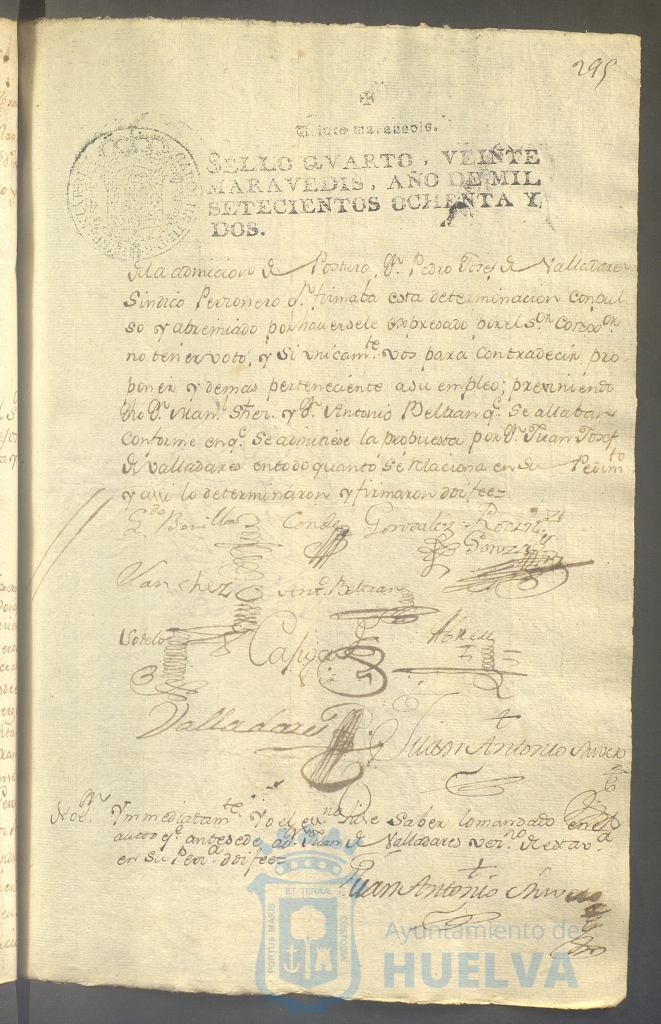 295
Veinte maravedis.
SELLO QVARTO, VEINTE
MARAVEDIS, AÑO DE MIL
SETECIENTOS OCHENTA Y
DOS.
de la admicion de Postura, Dn. Pedro Josef de Valladares
Sindico Perzonero qe. firmaba esta determinacion conpul
so y abremiado por hauersele expresado por el Sor. Correxor.
no tener voto, y Si vnicamte. vos para contradecir pro
poner y demas perteneciente a su empleo; previniendo
dho Dn. Manl. Schez. y Dn. Antonio Beltran qe. Se allaban
conforme en qe. Se admitiese la propuesta por Dn. Juan Josef
de Valladares en todo quanto Se relaciona en Su Pedimto
y assi lo determinaron y firmaron doi fee=
Ldo Bonilla Conde Gonzalez
Sanchez Anto. Beltran
Sotelo Abreu
Valladares Juan Antonio
Noton. Ymmediatamte. Yo el esno. hise saber lo mandado en el
auto qe. antesede, a Dn. Juan de Valladares vezno. de esta va
en Su Pera. doi fee=
Juan Antonio
PORTUS MARIS
ET TERRAE
CUSTODIA
Ayuntamiento de
HUELVA